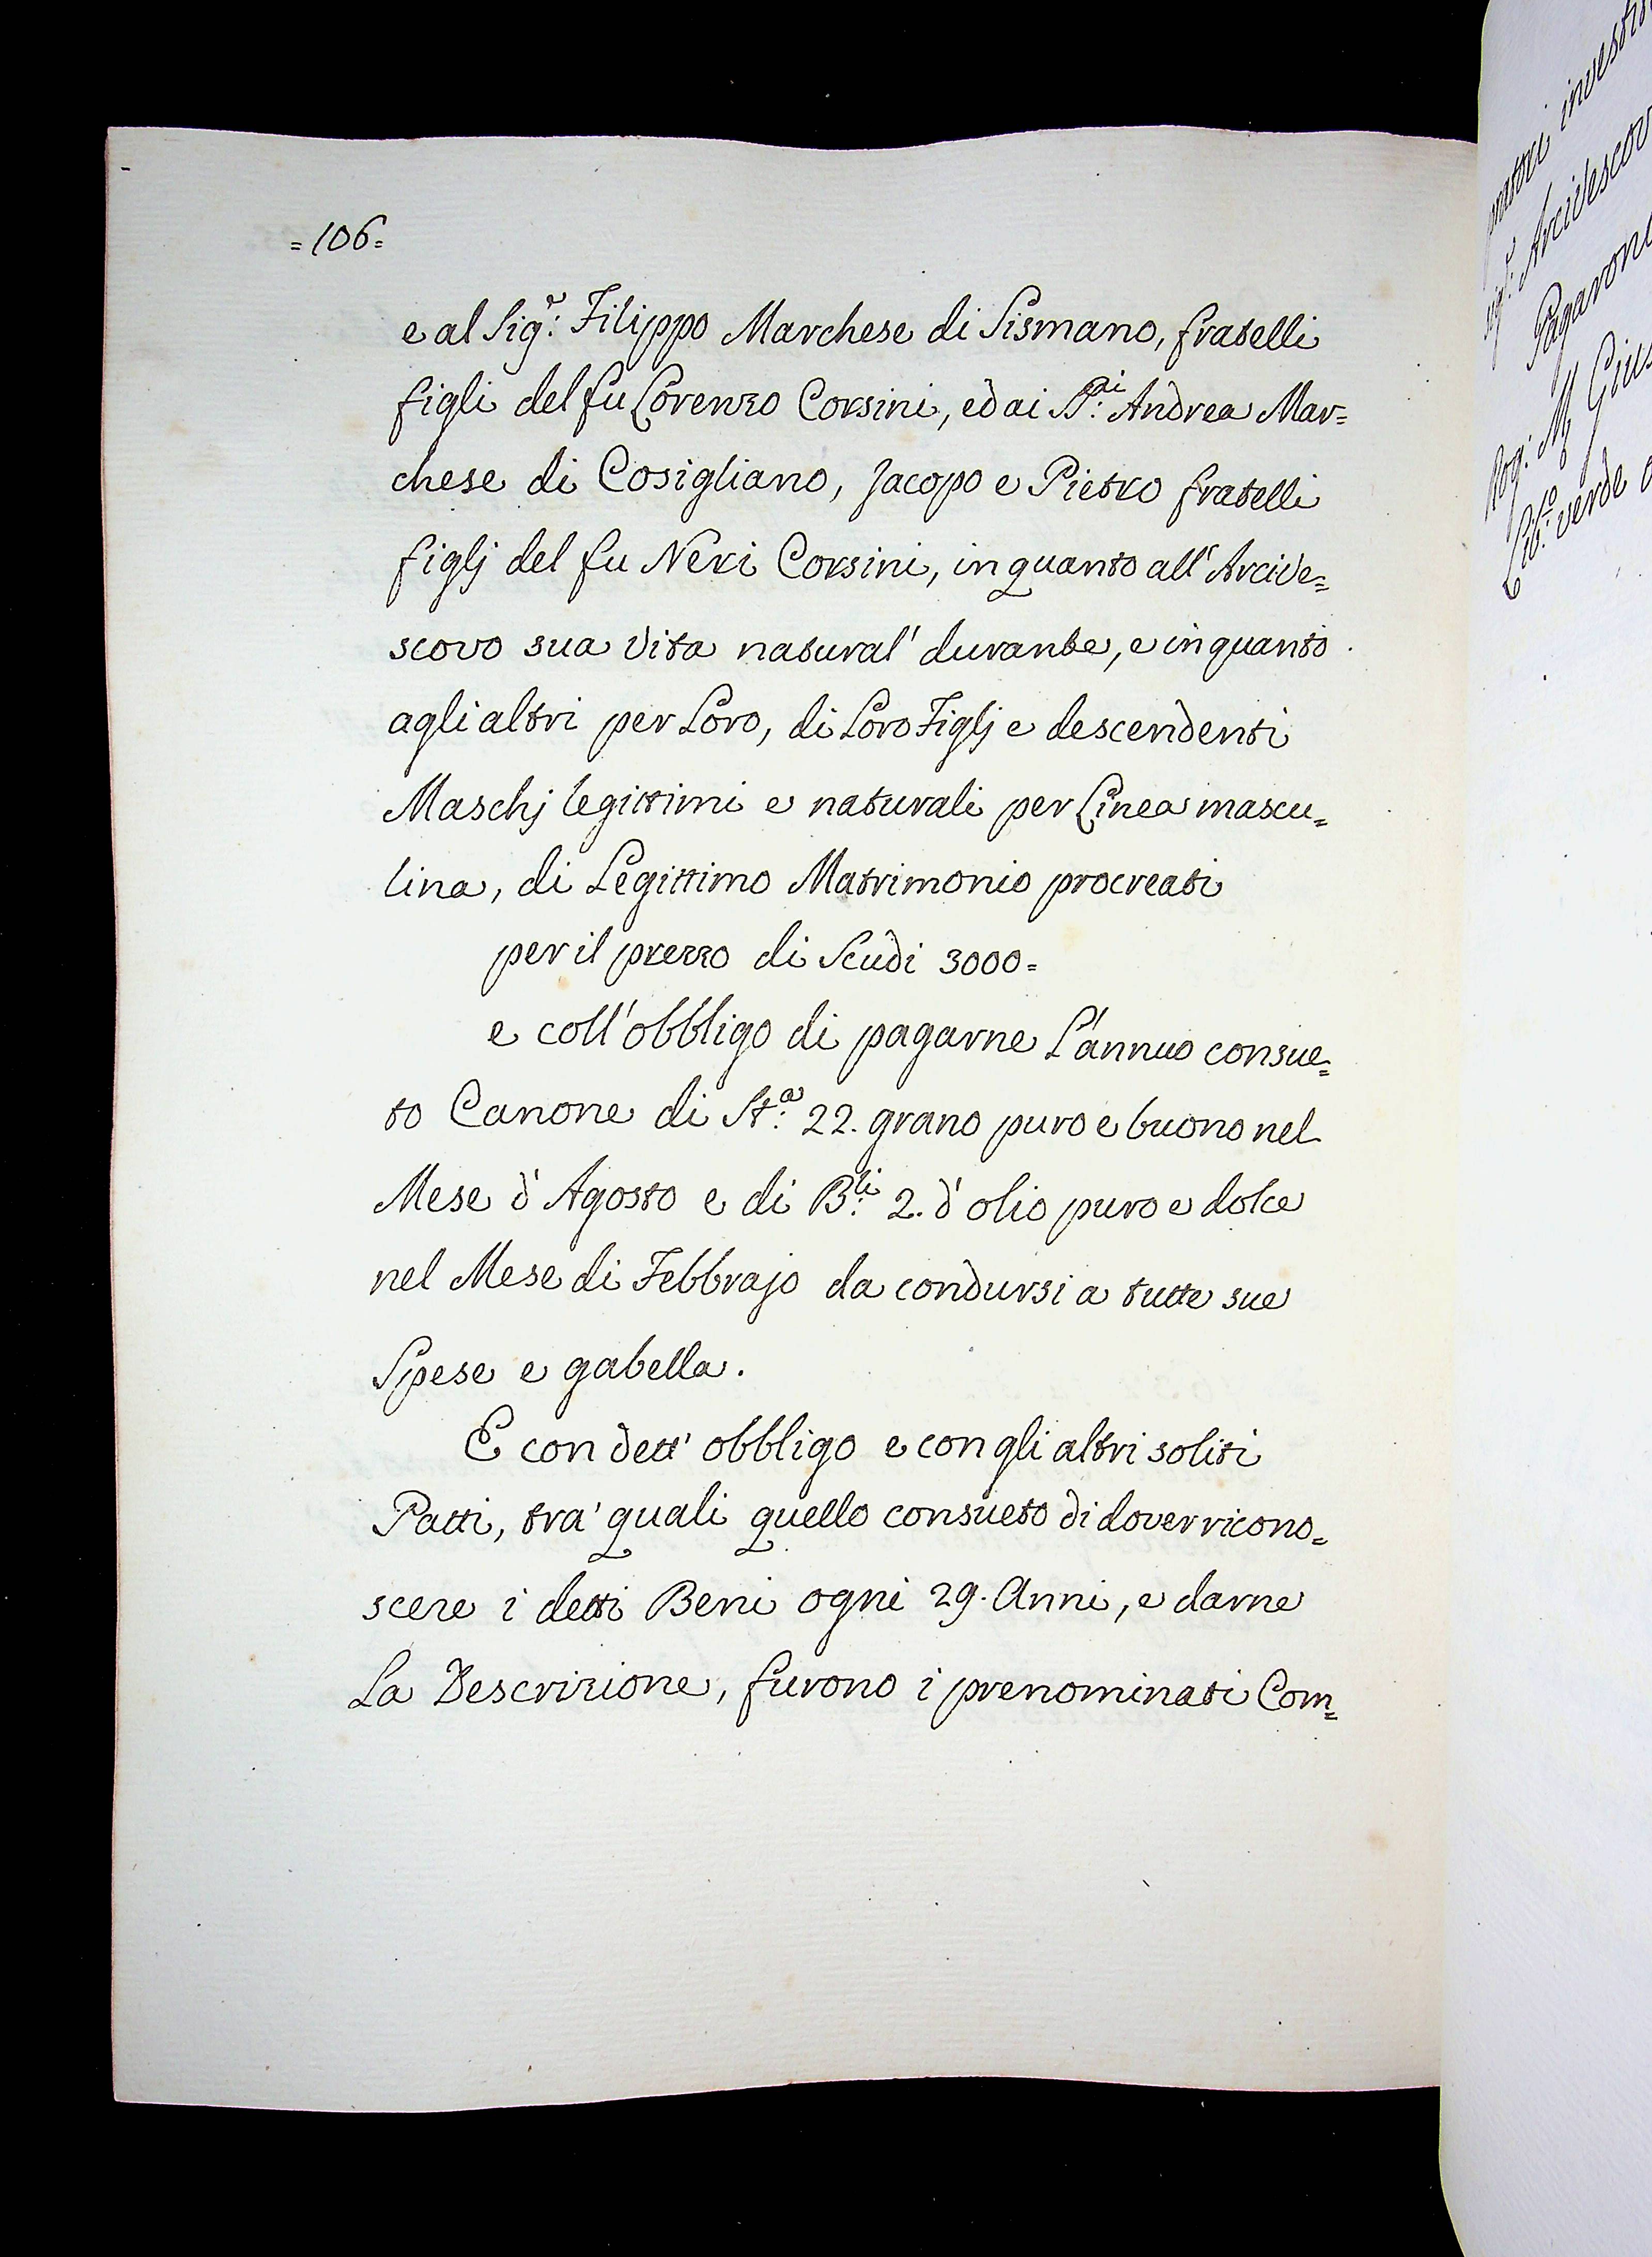 =106=
e al Sig.r Filippo Marchese di Sismano, fratelli
figli del fu Lorenzo Corsini, ed ai Andrea Mar=
chese di Cosigliano, Jacopo e Pietro fratelli
figlj del fu Neri Corsini, in quanto all'Arcive=
scovo sua vita natural' durante, e in quanto
agli altri per Loro, di Loro Figlj e descendenti
Maschj legittimi e naturali per Linea mascu=
lina, di Legittimo Matrimonio procreati
per il prezzo di Scudi 3000=
e coll'obbligo di pagarne L'annuo consue=
to Canone di St.a 22. grano puro e buono nel
Mese d'Agosto e di B.li 2. d'olio puro e dolce
nel Mese di Febbrajo da condursi a tutte sue
Spese e gabella.
E con dett' obbligo e con gli altri soliti
Patti, tra' quali quello consueto di dover ricono=
scere i detti Beni ogni 29. Anni, e darne
La Descrizione, furono i prenominati Com=
investi
Arcivescov
Pagarono
Rog: Giu
Lib.o verde